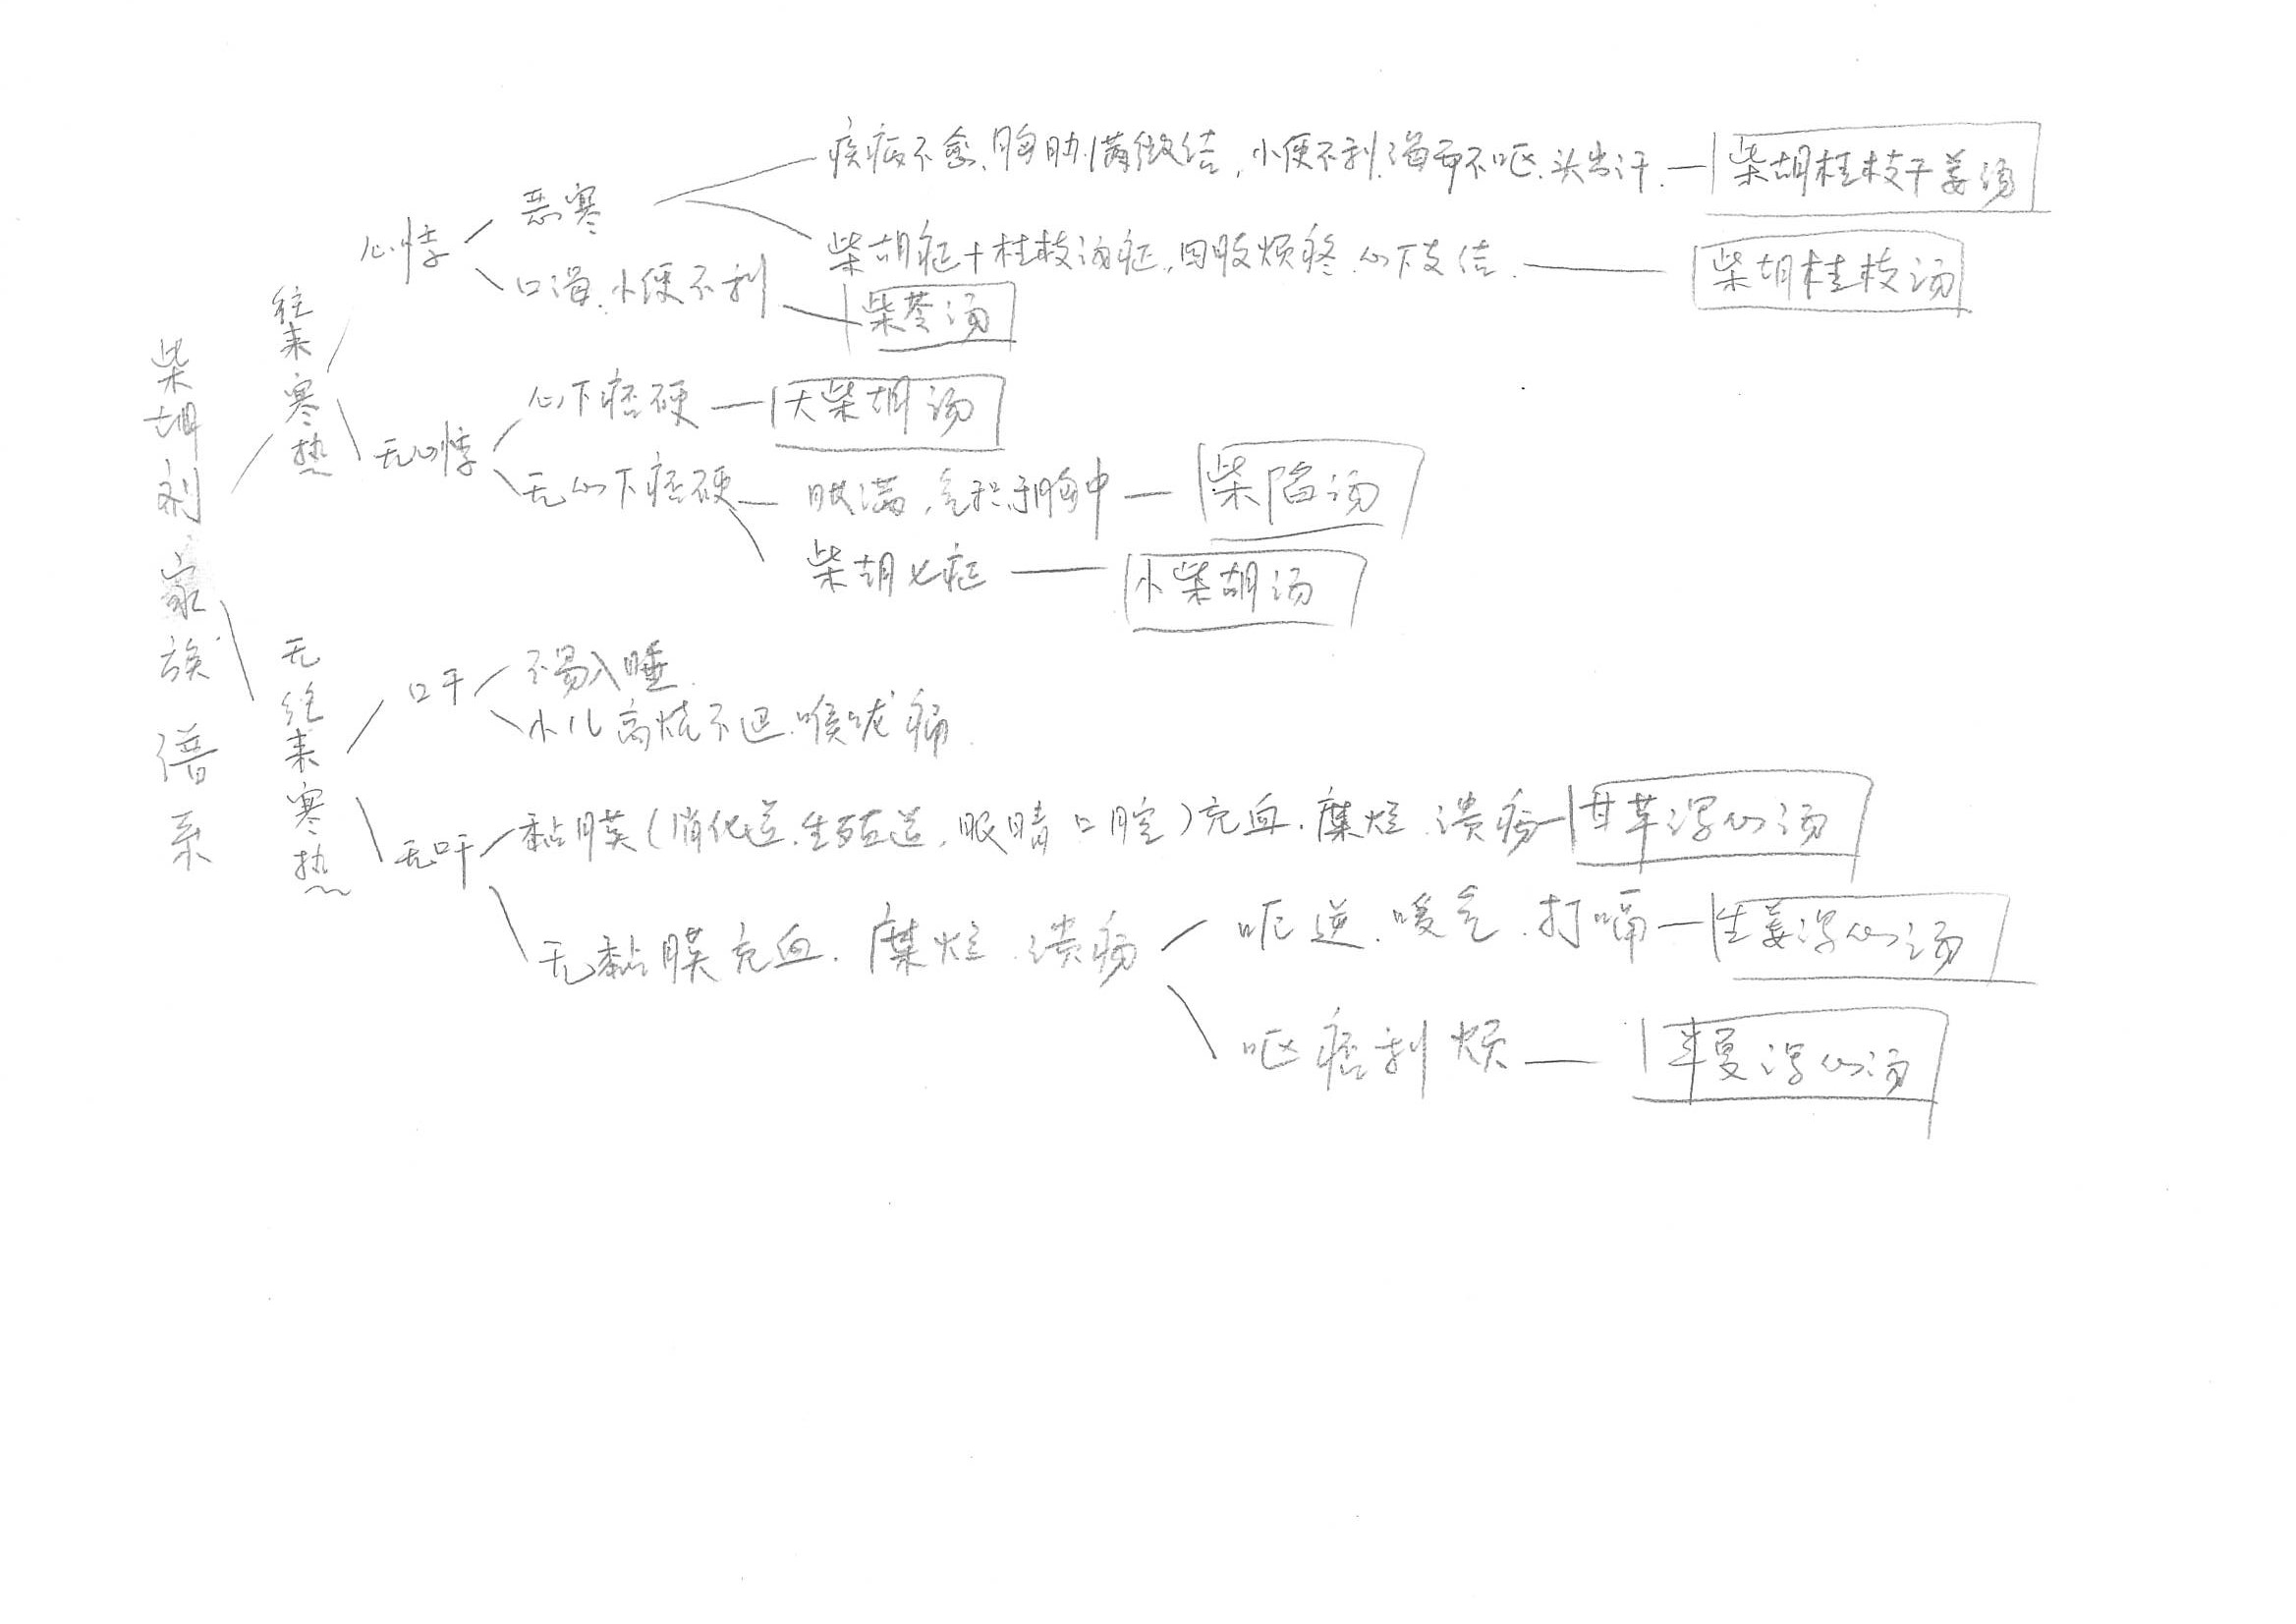 柴胡剂家族谱系
往来寒热
心悸
恶寒
疾病不愈、胸胁满微结，小便不利、渴而不呕、头出汗.
柴胡桂枝干姜汤
柴胡症+桂枝汤症，四肢烦疼.心下支结.
柴胡桂枝汤
口渴.小便不利
柴苓汤
无心悸
心下痞硬
大柴胡汤
无心下痞硬
满，气积于胸中
柴陷汤
柴胡七症
小柴胡汤
无往来寒热
口干
不易入睡.
小儿高烧不退.喉咙痛.
无口干
黏膜(消化道.生殖道.眼睛 口腔)充血.糜烂.溃疡
甘草泻心汤
无黏膜充血.糜烂.溃疡
呃逆.嗳气.打嗝
生姜泻心汤
呕痞利烦
半夏泻心汤